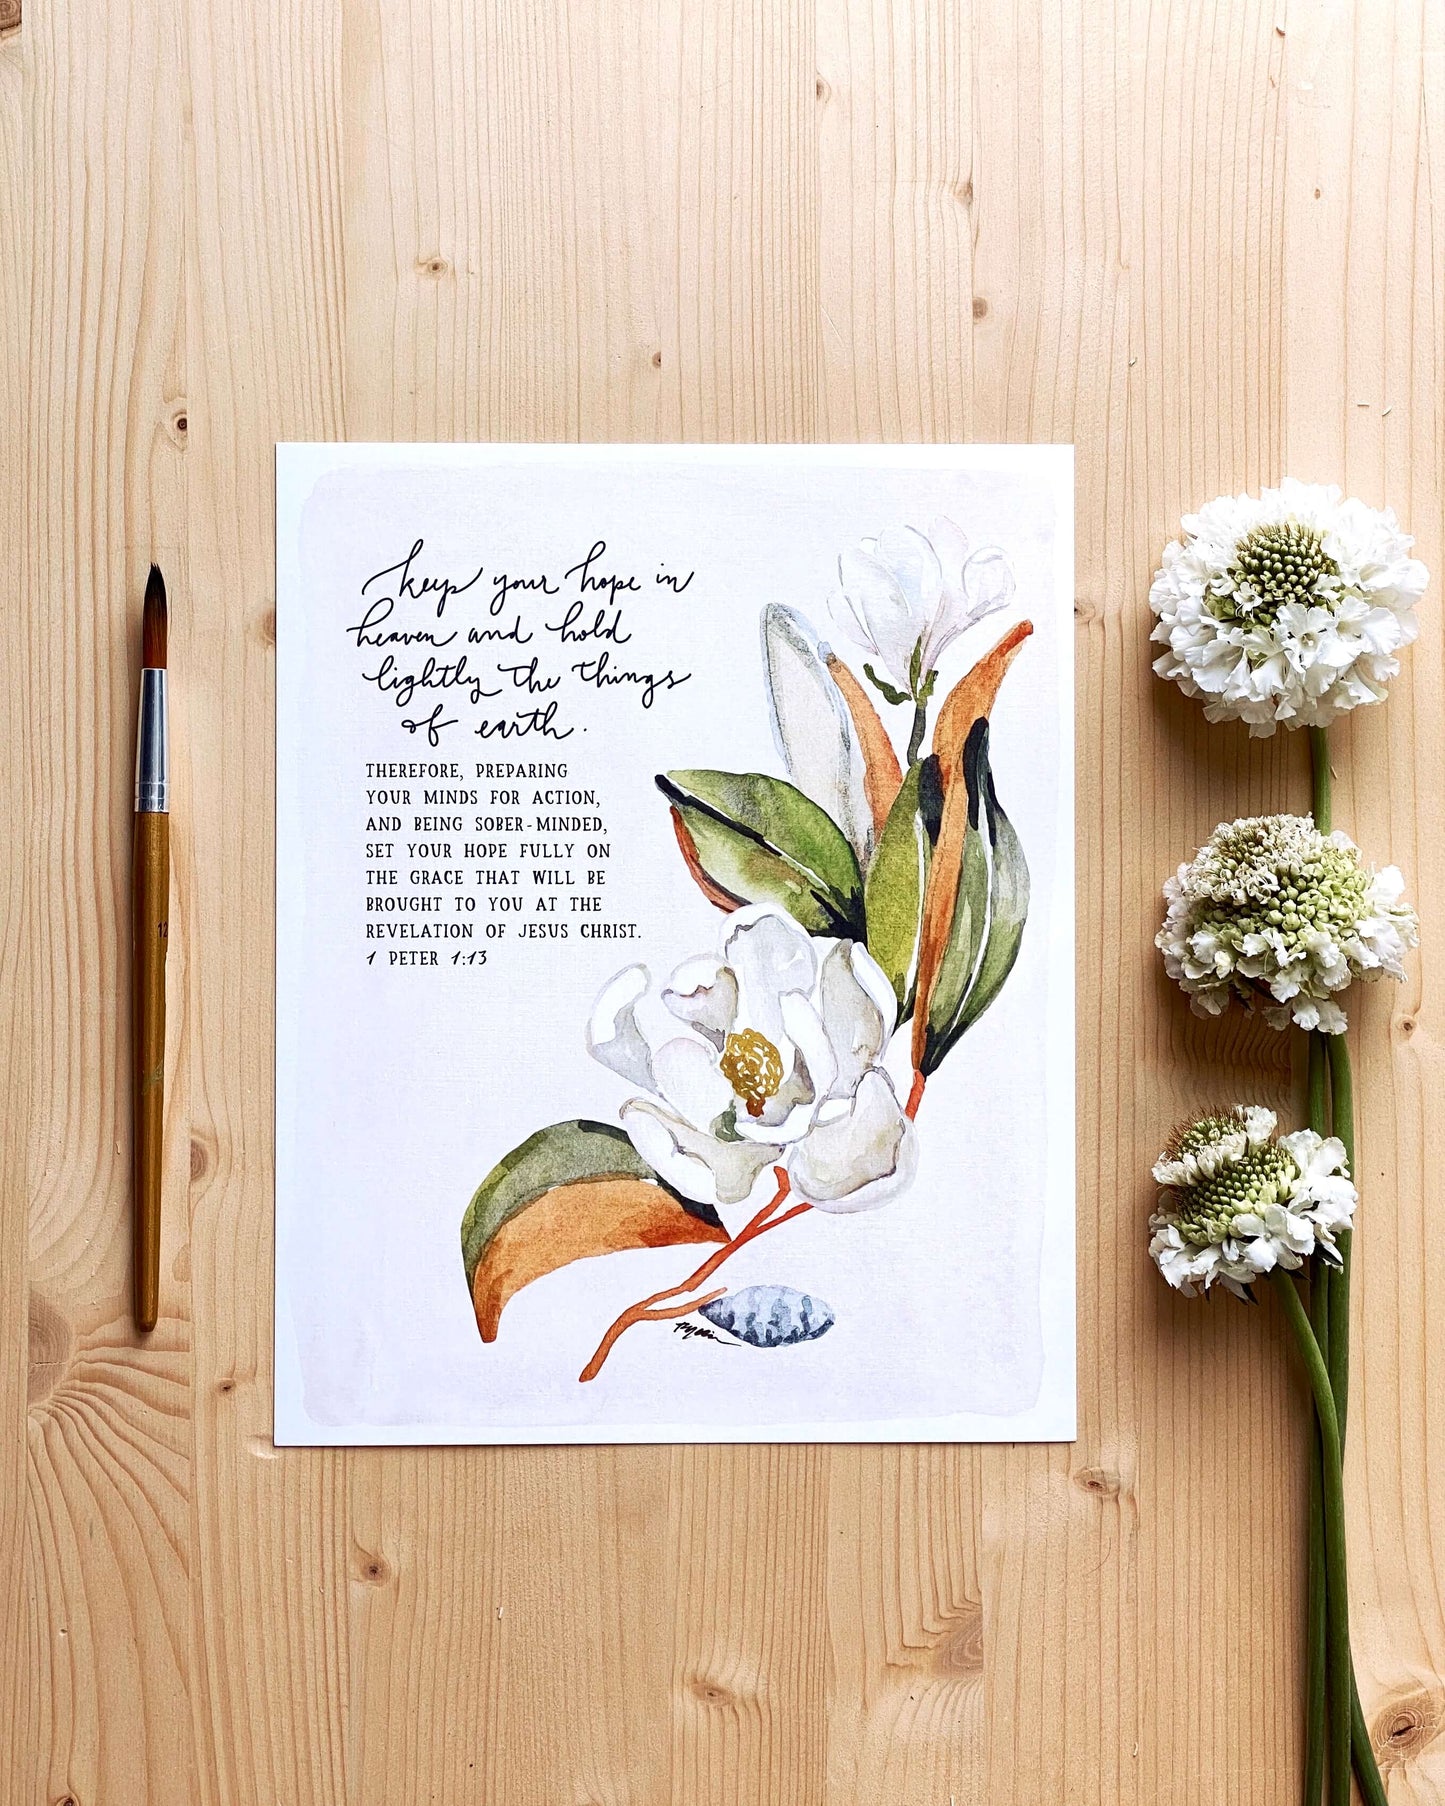 keep your hope in
heaven and hold
lightly the things
of earth.
THEREFORE, PREPARING
YOUR MINDS FOR ACTION,
AND BEING SOBER-MINDED,
SET YOUR HOPE FULLY ON
THE GRACE THAT WILL BE
BROUGHT TO YOU AT THE
REVELATION OF JESUS CHRIST.
1 PETER 1:13
12